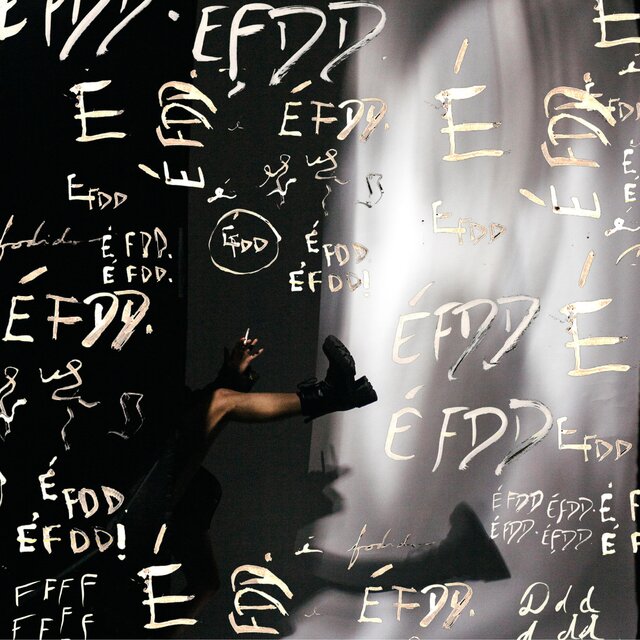 EFDD.
ÉFDD.
É
É FDD.
É FDD.
É
É FDD.
EFDD
é
EFDD
EFDD
fodido
É FDD.
É FDD.
É FDD
É FDD!
É FDD.
É FDD
É
É FDD
EFDD
É FDD.
É FDD!
É FDD
É FDD.
É FDD.
É FDD
é fodido
F F F F
F F F F
É
FDD.
É FDD.
D d d
d d d d